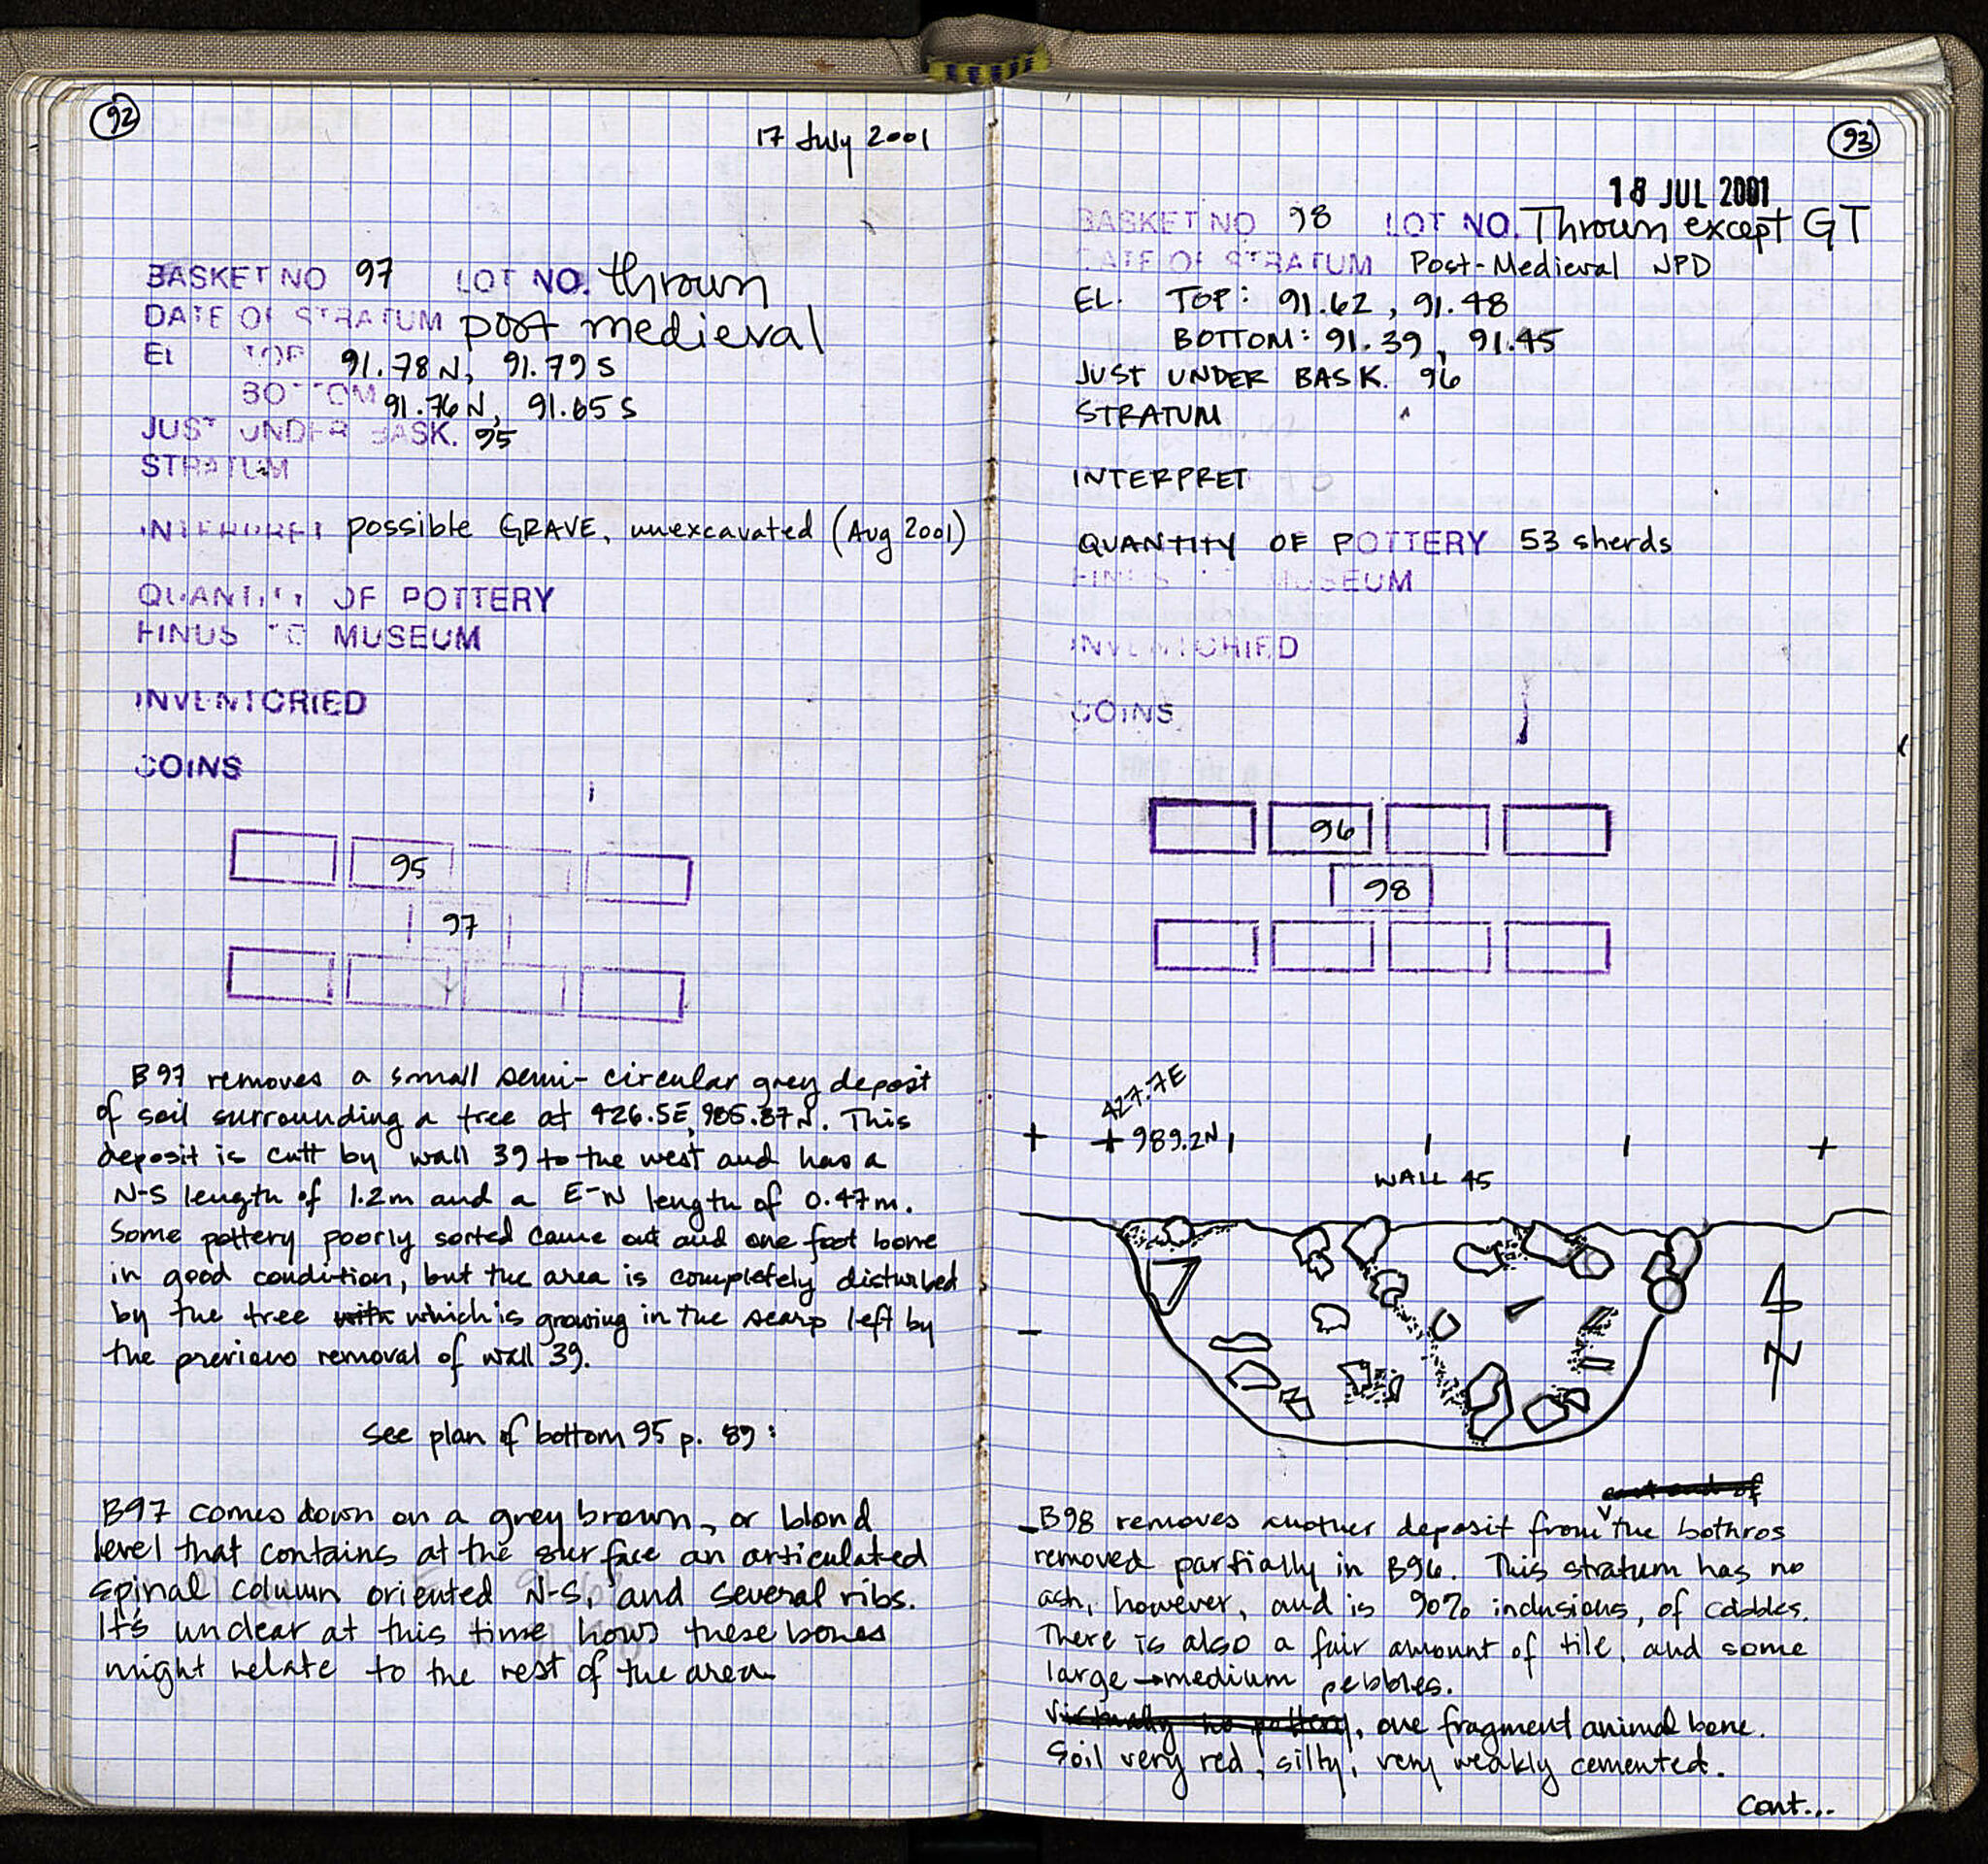 92
17 July 2001
BASKET NO 97 LOT NO. thrown
DATE OF STRATUM post medieval
EL TOP 91.78 N, 91.79 S
BOTTOM 91.76 N, 91.65 S
JUST UNDER BASK. 95
STRATUM
INTERPRET possible GRAVE, unexcavated (Aug 2001)
QUANTITY OF POTTERY
FINDS TO MUSEUM
INVENTORIED
COINS
95
97
B97 removes a small semi-circular grey deposit
of soil surrounding a tree at 426.5E, 985.87N. This
deposit is cutt by wall 39 to the west and has a
N-S length of 1.2m and a E-W length of 0.47m.
Some pottery poorly sorted came out and one foot bone
in good condition, but the area is completely disturbed
by the tree with which is growing in the scarp left by
the previous removal of wall 39.
see plan of bottom 95 p. 89:
B97 comes down on a grey brown, or blond
level that contains at the surface an articulated
spinal column oriented N-S, and several ribs.
It's unclear at this time how these bones
might relate to the rest of the area
93
18 JUL 2001
BASKET NO 98 LOT NO. Thrown except GT
DATE OF STRATUM Post-Medieval NPD
EL. TOP: 91.62, 91.48
BOTTOM: 91.39, 91.45
JUST UNDER BASK. 96
STRATUM
INTERPRET
QUANTITY OF POTTERY 53 sherds
FINDS MUSEUM
INVENTORIED
COINS
96
98
427.7E
989.2N
WALL 45
N
B98 removes another deposit from the bothros
removed partially in B96. This stratum has no
ash, however, and is 90% inclusions, of cobbles.
There is also a fair amount of tile, and some
large → medium pebbles.
virtually no pottery, one fragment animal bone.
Soil very red, silty, very weakly cemented.
Cont...